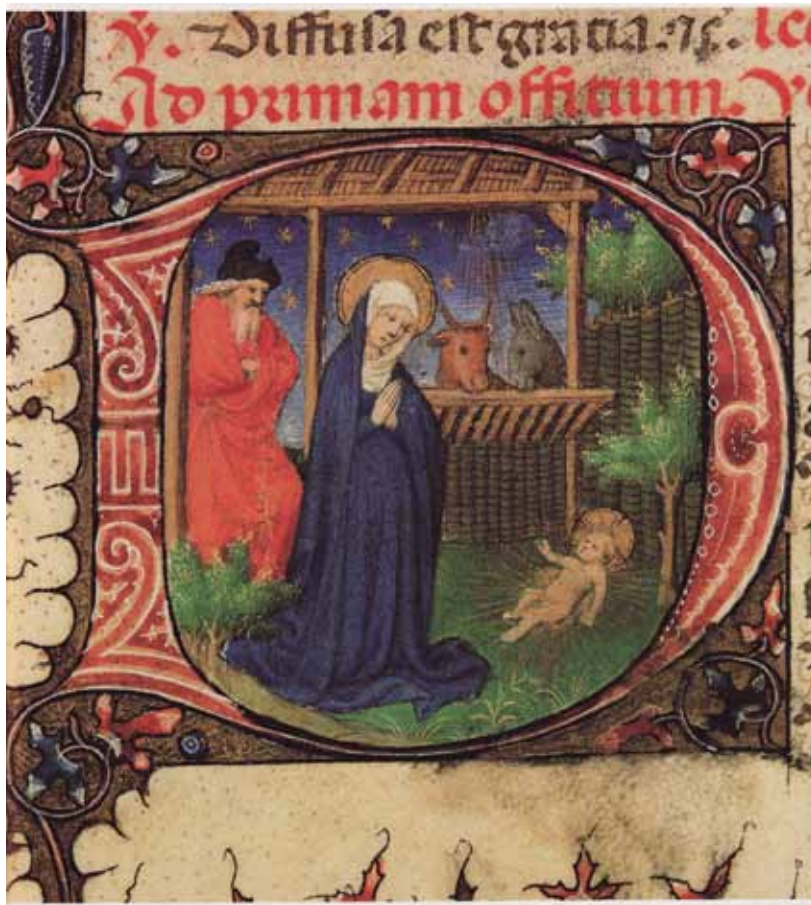 ℣. Diffusa est gratia. ℟. le
Ad primam officium. V
D